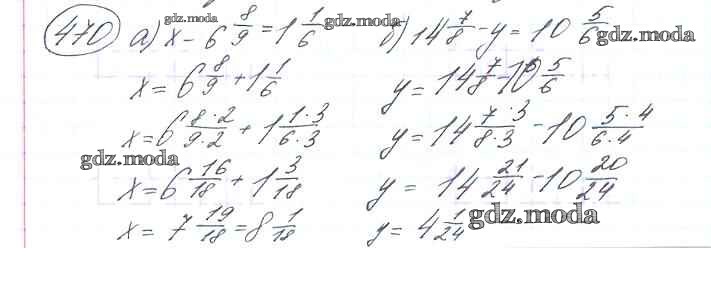 470 а) x - 6 8/9 = 1 1/6 б) 14 7/8 - y = 10 5/6
gdz.moda gdz.moda gdz.moda
x = 6 8/9 + 1 1/6 y = 14 7/8 - 10 5/6
x = 6 8·2/9·2 + 1 1·3/6·3 y = 14 7·3/8·3 - 10 5·4/6·4
gdz.moda
x = 6 16/18 + 1 3/18 y = 14 21/24 - 10 20/24
x = 7 19/18 = 8 1/18 y = 4 1/24
gdz.moda